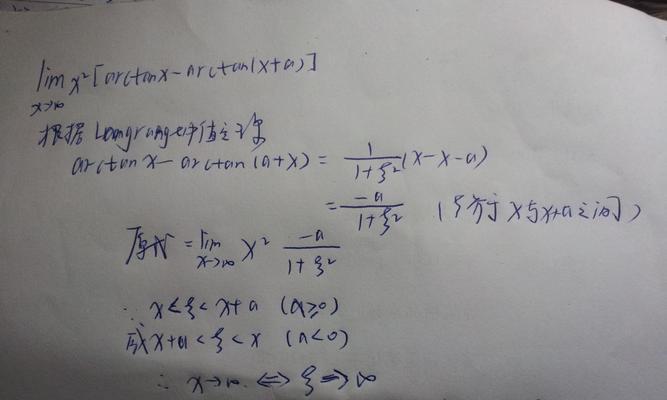 lim x→∞ x²[arctanx-arctan(x+a)]
根据Langrange中值定理
arctan x - arctan(a+x) = 1/(1+ξ²) (x-x-a)
= -a/(1+ξ²) (ξ介于x与x+a之间)
原式 = lim x→∞ x² -a/(1+ξ²)
∵ x≤ξ<x+a (a≥0)
或x+a<ξ<x (a<0)
∴ x→∞ ⇔ ξ→∞